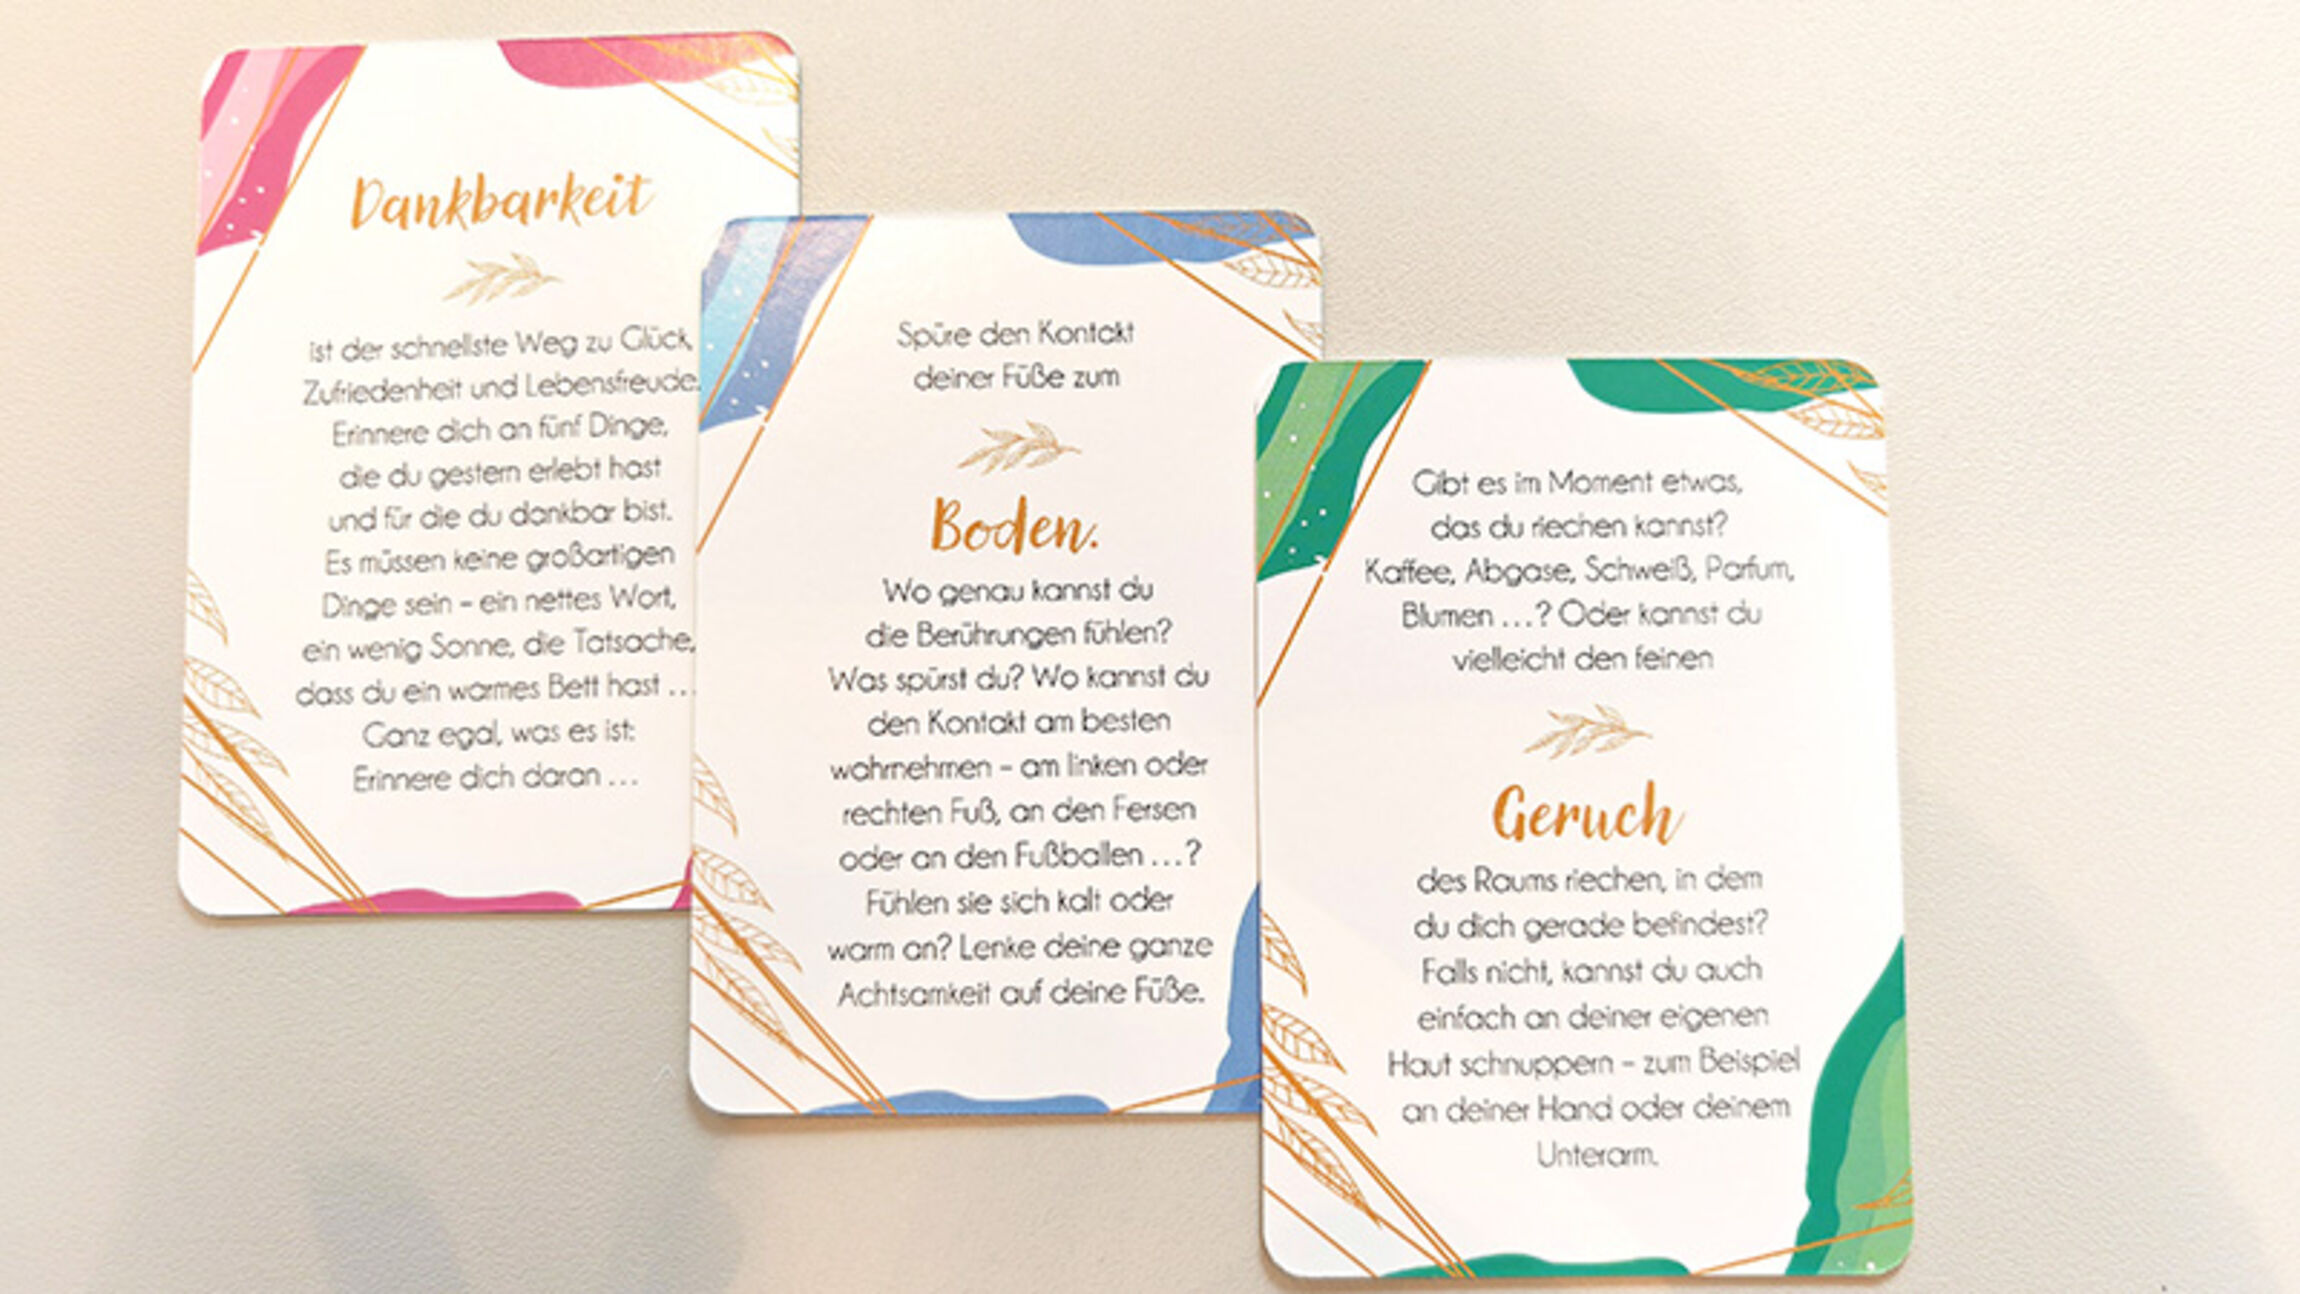 Dankbarkeit
ist der schnellste Weg zu Glück,
Zufriedenheit und Lebensfreude.
Erinnere dich an fünf Dinge,
die du gestern erlebt hast
und für die du dankbar bist.
Es müssen keine großartigen
Dinge sein – ein nettes Wort,
ein wenig Sonne, die Tatsache,
dass du ein warmes Bett hast ...
Ganz egal, was es ist:
Erinnere dich daran ...
Spüre den Kontakt
deiner Füße zum
Boden.
Wo genau kannst du
die Berührungen fühlen?
Was spürst du? Wo kannst du
den Kontakt am besten
wahrnehmen – am linken oder
rechten Fuß, an den Fersen
oder an den Fußballen ...?
Fühlen sie sich kalt oder
warm an? Lenke deine ganze
Achtsamkeit auf deine Füße.
Gibt es im Moment etwas,
das du riechen kannst?
Kaffee, Abgase, Schweiß, Parfum,
Blumen ...? Oder kannst du
vielleicht den feinen
Geruch
des Raums riechen, in dem
du dich gerade befindest?
Falls nicht, kannst du auch
einfach an deiner eigenen
Haut schnuppern – zum Beispiel
an deiner Hand oder deinem
Unterarm.